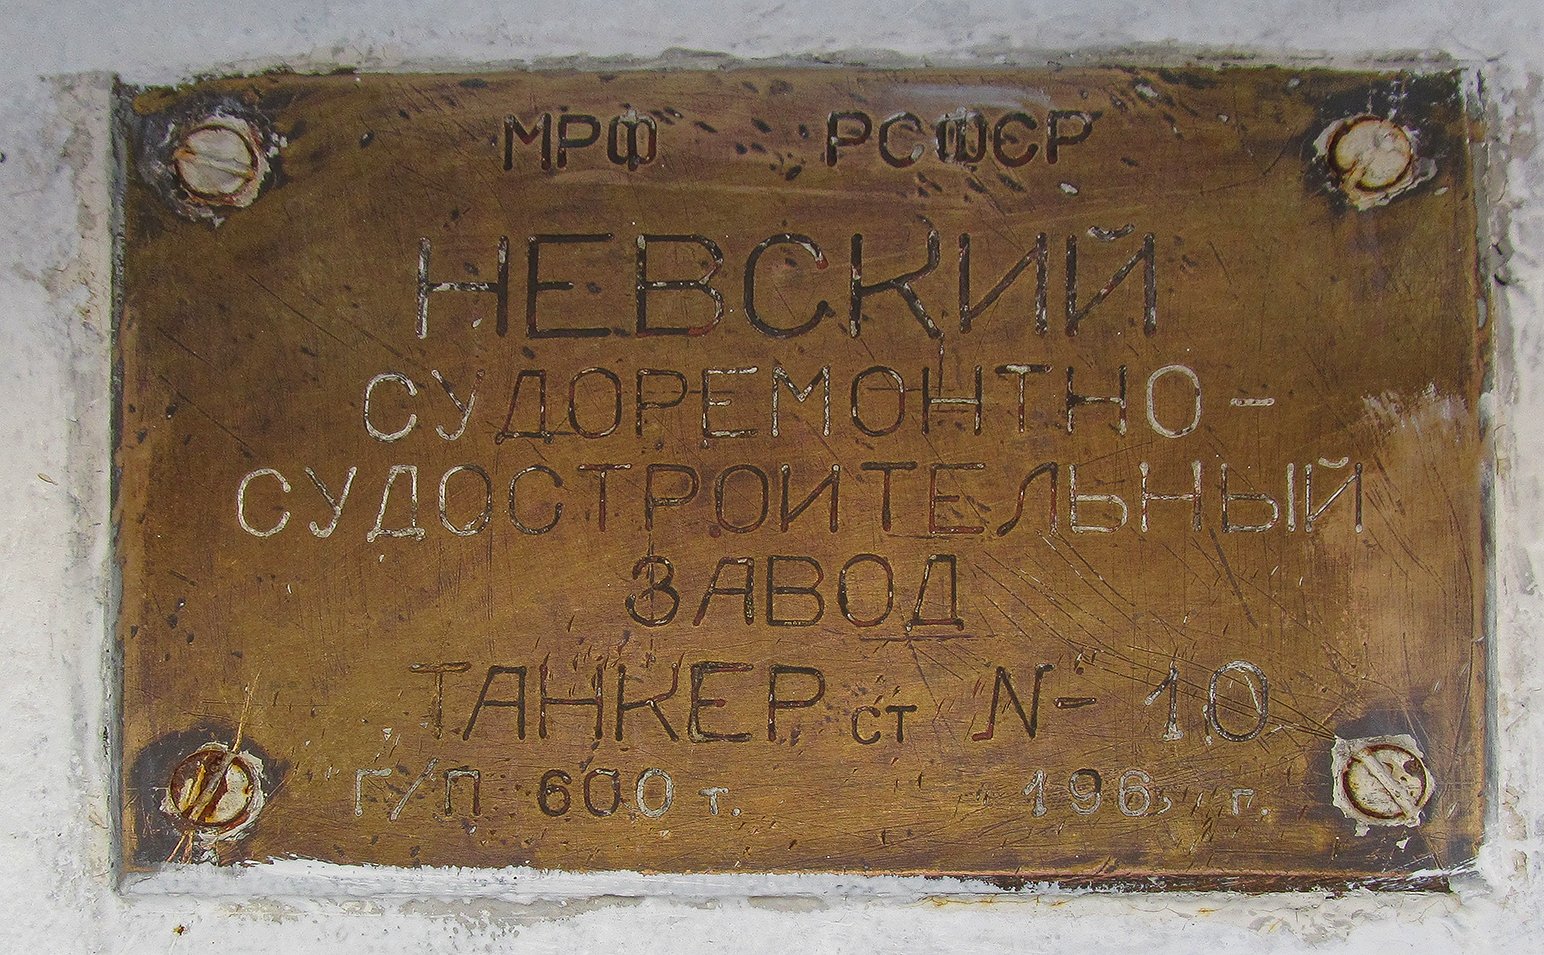 МРФ РСФСР
НЕВСКИЙ
СУДОРЕМОНТНО-
СУДОСТРОИТЕЛЬНЫЙ
ЗАВОД
ТАНКЕР СТ N-10
Г/П 600 т. 196 г.